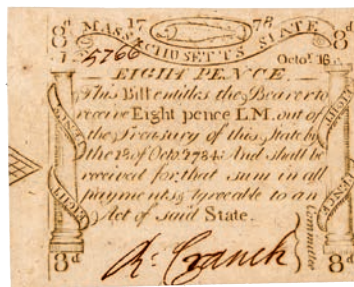 8d 17 78 8d
MASSACHUSETTS STATE
5766 Octor 16
EIGHT PENCE
This Bill entitles the Bearer to
receive Eight pence L.M. out of
the Treasury of this State by
the 18 of Octor 1784: And shall be
received for that sum in all
payments Agreeable to an
Act of said State.
Committee
Rd Cranch
8d 8d